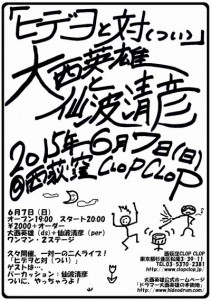 「ヒデヨと対(つい)」
大西英雄
と
仙波清彦
2015年6月7日(日)
@西荻窪CLOPCLOP
6月7日(日)
オープン19:00 スタート20:00
¥2000+オーダー
大西英雄(ds)+仙波清彦(per)
ワンマン・2ステージ
久々開催、一対一の二人ライブ!
「ヒデヨと対(つい)」
ゲストは…、
パーカッション・仙波清彦
ついに、やっちゃうよ!
西荻窪CLOP CLOP
TEL 03-5370-2381
http://www.clopclop.jp/
大西英雄公式ホームページ
「ドラマー大西英雄の手術跡」
http://hideodrum.com/